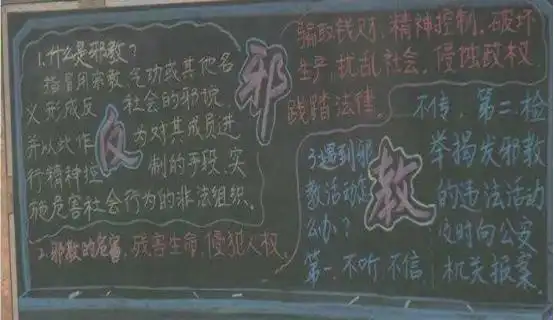 反邪教
1.什么是邪教?
指冒用宗教、气功或其他名
义形成反社会的邪说,
并以此作为对其成员进
行精神控制的手段,实
施危害社会行为的非法组织。
2.邪教的危害,残害生命,侵犯人权,
骗取钱财,精神控制,破坏
生产,扰乱社会,侵蚀政权,
践踏法律。
3.遇到邪
教活动怎
么办?
第一,不听,不信,
不传,第二,检
举揭发邪教
的违法活动
及时向公安
机关报案。